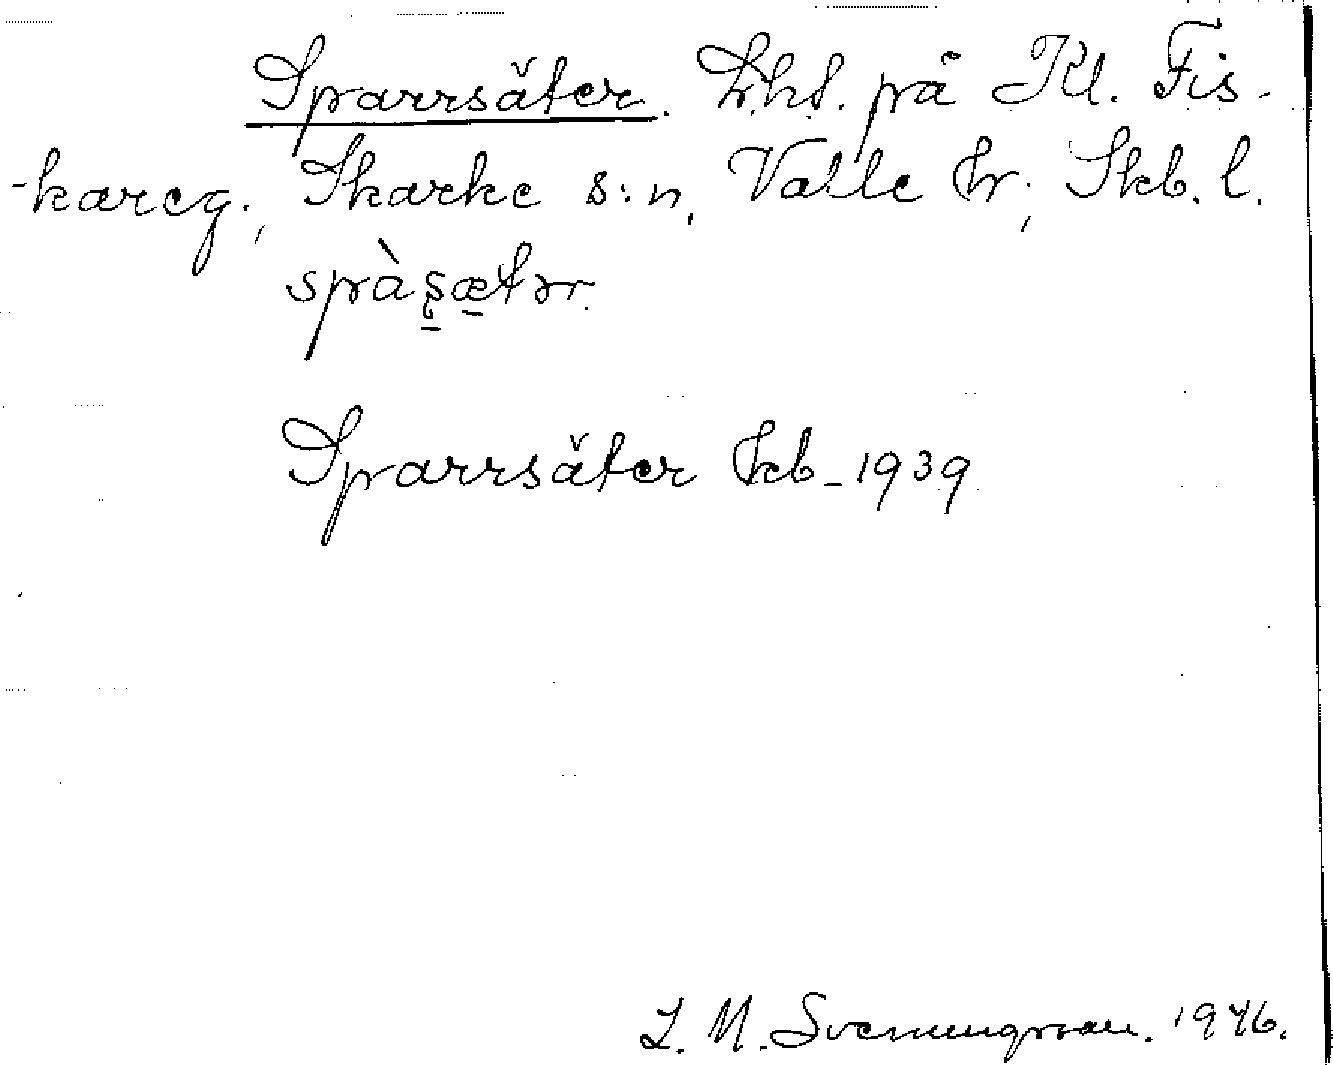 Sparrsäter. Lht. på Kl. Fis-
-kareg., Skarke s:n, Valle hr, Skb. l.
spàs̨ætər.
Sparrsäter kb - 1939
L. M. Svenungsson. 1946.